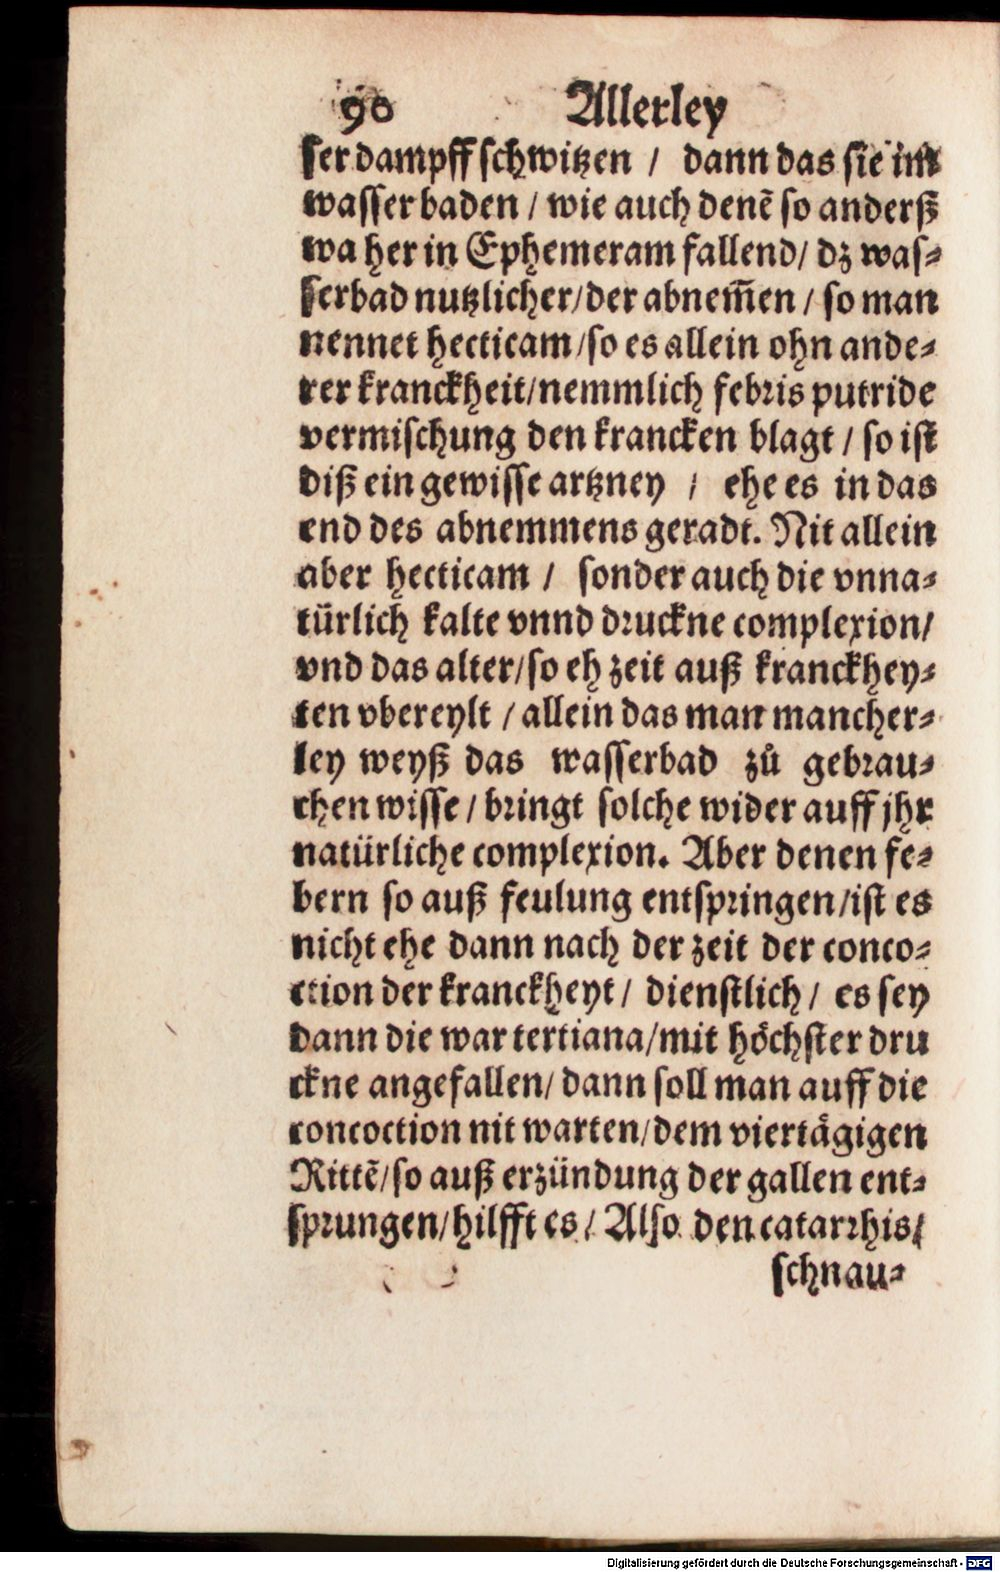 90 Allerley
ser dampff schwitzen / dann das sie im
wasser baden / wie auch denē so anderß
wa her in Ephemeram fallend / dz was⸗
serbad nutzlicher / der abnem̄en / so man
nennet hecticam / so es allein ohn ande⸗
rer kranckheit / nemmlich febris putride
vermischung den krancken blagt / so ist
diß ein gewisse artzney / ehe es in das
end des abnemmens geradt. Nit allein
aber hecticam / sonder auch die vnna⸗
türlich kalte vnnd druckne complexion /
vnd das alter / so eh zeit auß kranckhey⸗
ten vbereylt / allein das man mancher⸗
ley weyß das wasserbad zů gebrau⸗
chen wisse / bringt solche wider auff jhr
natürliche complexion. Aber denen fe⸗
bern so auß feulung entspringen / ist es
nicht ehe dann nach der zeit der conco⸗
ction der kranckheyt / dienstlich / es sey
dann die war tertiana / mit höchster dru
ckne angefallen / dann soll man auff die
concoction nit warten / dem viertägigen
Rittē / so auß erzündung der gallen ent⸗
sprungen / hilfft es / Also den catarrhis /
schnau⸗
Digitalisierung gefördert durch die Deutsche Forschungsgemeinschaft - DFG